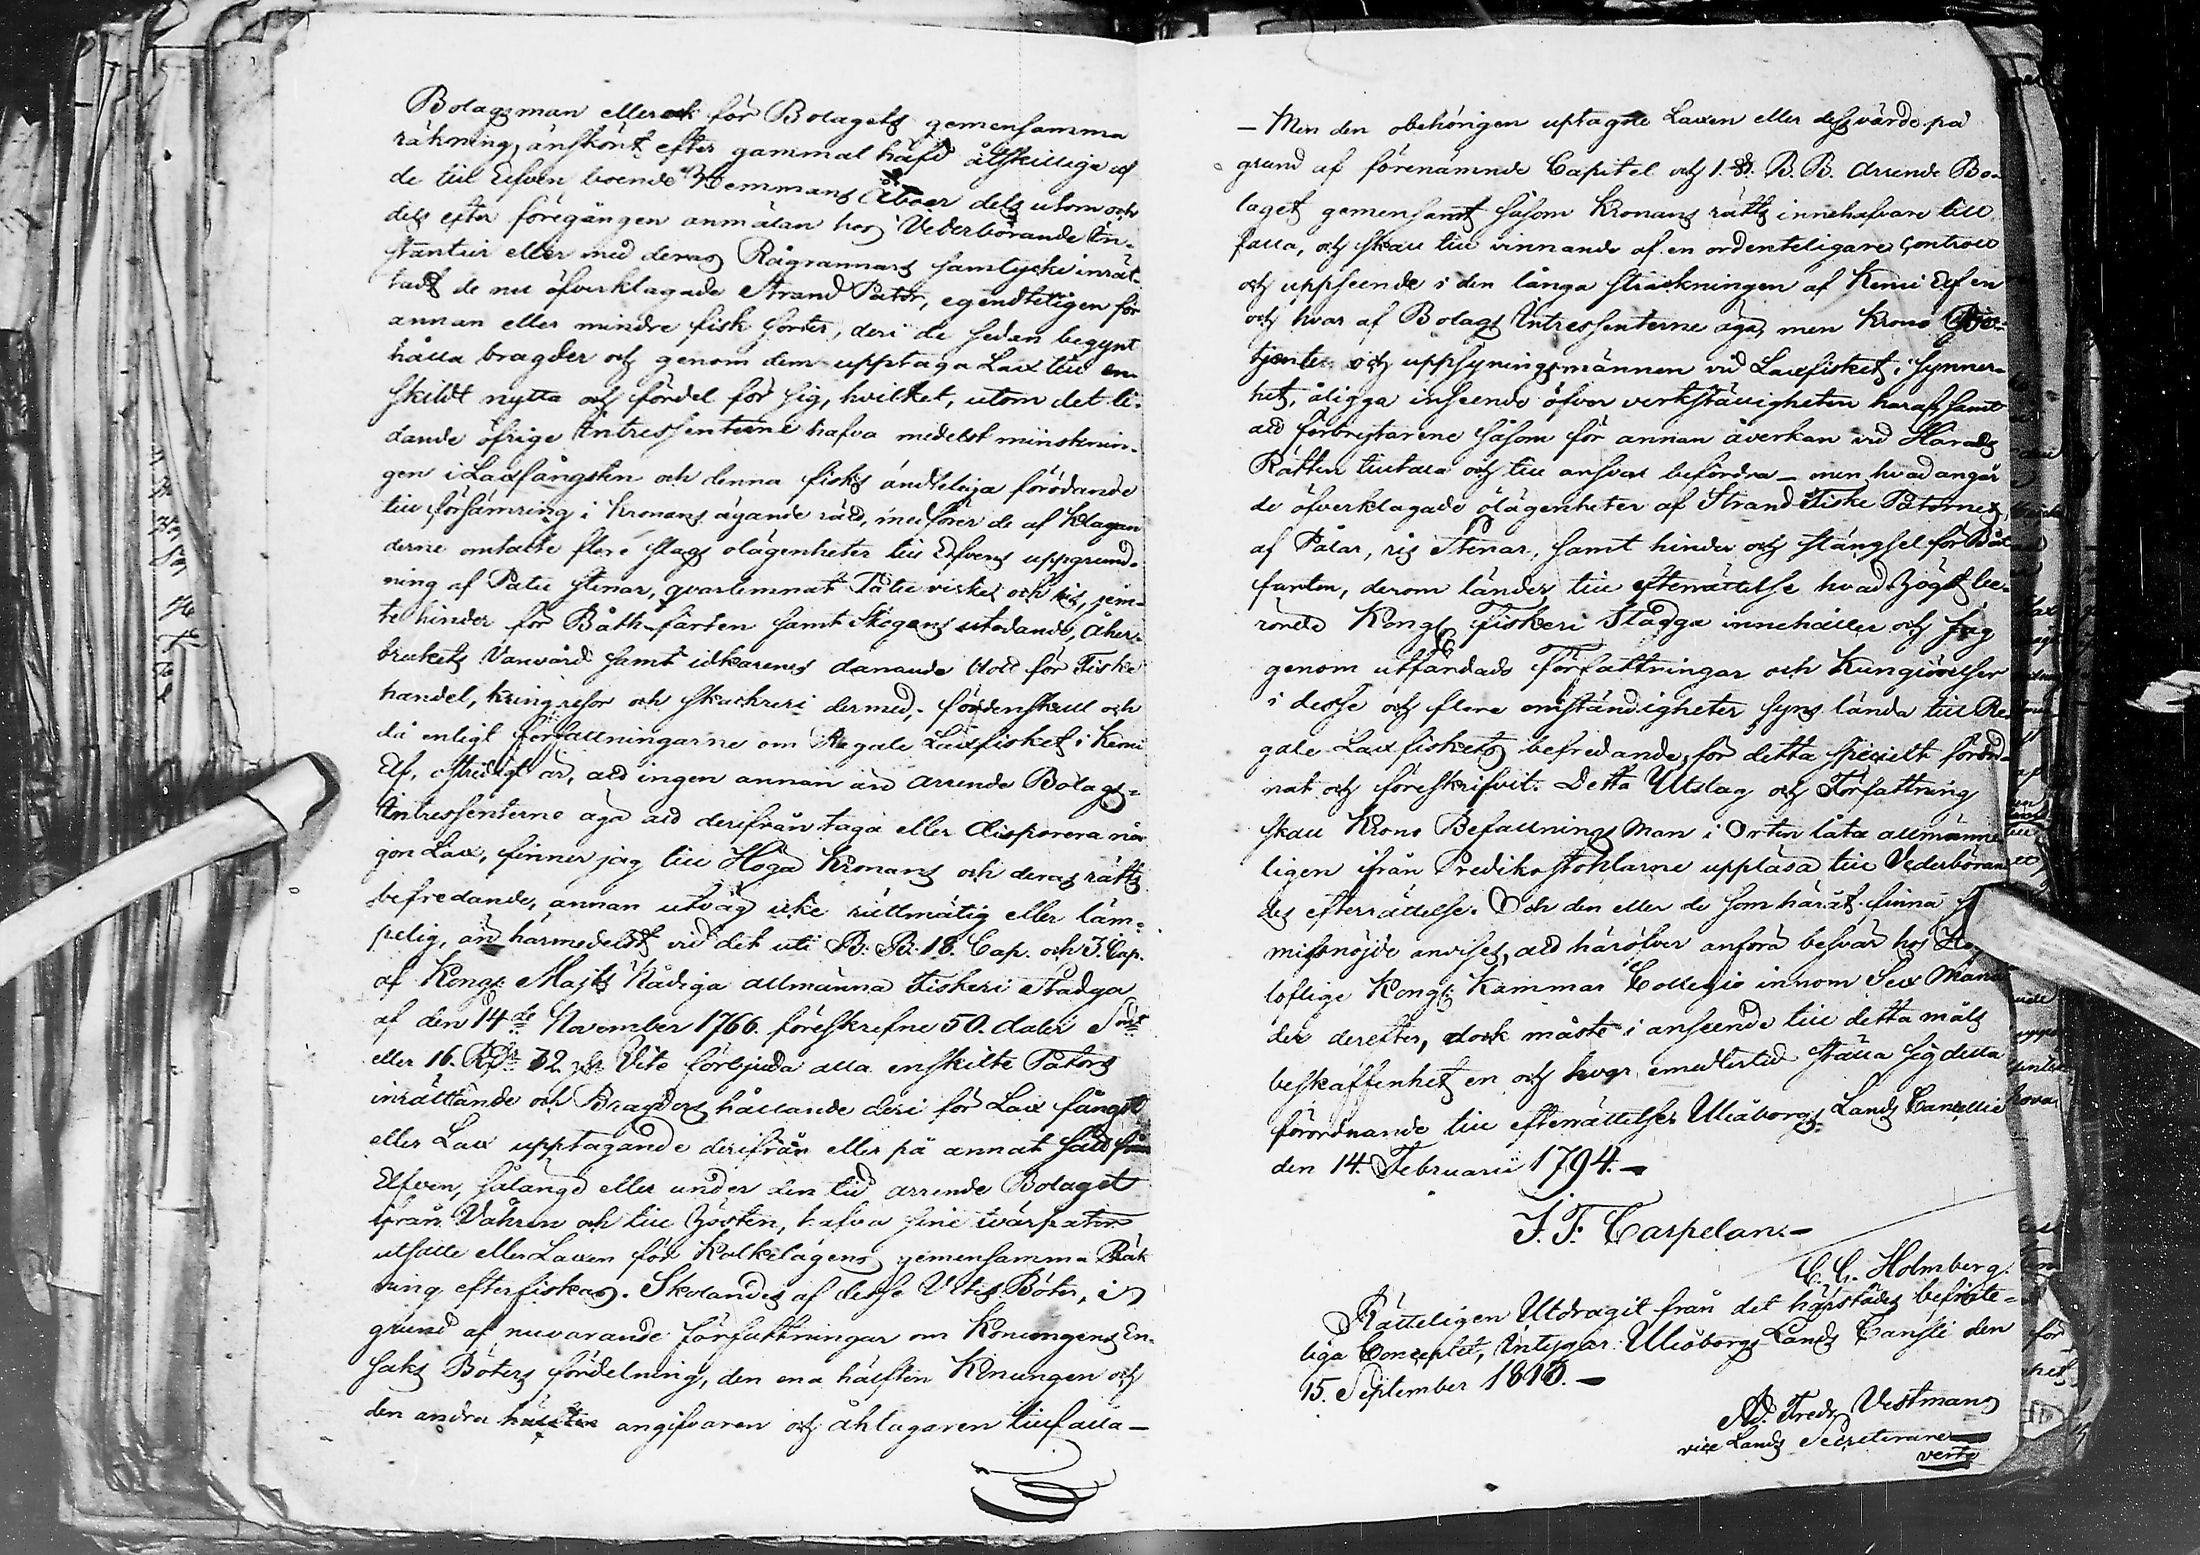 Bolagsman eller ock för Bolagets gemensamma
räkning, änskönt efter gammal häfd åtskillige af
de till Elfven boende Hemmans Åboer dels utom och
dels efter föregången anmälan hos Vederbörande In-
stantier eller med deras Rågrannars samtycke inrät-
tadt de nu öfverklagade Strand Pator, egendteligen för
annan eller mindre fisk sorter, deri de sedan begynt
hålla bragder och genom dem upptaga Lax till en-
skildt nytta och fördel för sig, hvilket, utom det li-
dande öfrige Intressenterne hafva medelst minsknin-
gen i Laxfångsten och denna fisks ändteliga förödande
till försämring i Kronans ägande rätt, medförer de af Klagan
derne omtalte flere slags olägenheter till Elfvens uppgrund-
ning af Patu stenar, qvarlemnat Påle virke och ris, jem-
te hinder för Båth-färden samt Skogens utödande, Åker-
brukets Vanvård samt idkarenes danande till för Fiske
handel, kringresor och skackreri dermed; fördenskull och
då enligt författningarne om Regale Laxfisket i Kemi
Elf, ostridigt är, att ingen annan än Arrende Bolags-
Intressenterne äga att derifrån taga eller disponera nå-
gon Lax, finner jag till Höga Kronans och deras rätts
befredande, annan utväg icke rättmätig eller läm-
pelig, än härmedelst vid det uti B. B. 18. Cap. och 3. Cap.
af Kongl. Majts Nådiga allmänna Fiskeri Stadga
af den 14de November 1766. föreskrefne 50. daler Smt
eller 16. Rdr 32 sk. Vite förbjuda alla enskilte Pators
inrättande och Bragders hållande deri för Lax fångst
eller Lax upptagande derifrån eller på annat sätt från
Elfven, sålänge eller under den tid arrende Bolaget
ifrån Våhren och till Hösten, hafva sine tvärpator
utsatte eller Laxen för Kolkelägens gemensamma Räk
ning efterfiskas. Skolandes af desse Vites Böter, i
grund af nuvarande författningar om Konungens En-
saks Böters fördelning, den ena hälften Konungen och
den andra hälften angifvaren och åklagaren tillfalla —
— Men den obehörigen uptagne Laxen eller dess värde på
grund af förenämnde Capitel och 1. §. B. B. Arrende Bo-
laget gemensamt såsom Kronans rätts innehafvare till
falla, och skall till vinnande af en ordenteligare Controll
och uppseende i den långa sträckningen af Kemi Elf en
och hvar af Bolags Intressenterne äga, men Krono Be-
tjente och uppsyningsmännen vid Laxfisket i synner-
het, åligga inseende öfver verkställigheten häraf, samt
att förbrytarene såsom för annan åverkan vid Härads
Rätten tilltala och till ansvar befordra — men hvad angår
de öfverklagade olägenheter af Strand Fiske Patornes,
af Pålar, ris Stenar, samt hinder och stängsel för Båt
farten, derom länder till efterrättelse hvad högst be-
rörde Kongl. Fiskeri Stadga innehåller och jag
genom utfärdade Författningar och Kungörelser
i desse och flere omständigheter syns lända till Re-
gale Laxfiskets befredande, för detta speciellt förord-
nat och föreskrifvit. Detta Utslag och Författning
skall Krono Befallnings Man i Orten låta allmänne-
ligen ifrån Predikostohlarne uppläsa till Vederböran-
des efterrättelse. Och den eller de som häråt finna sig
missnöjde anvises, att häröfver anföra besvär hos Hög
loflige Kongl. Kammar Collegio innom Sex Måna-
der derefter, dock måste i anseende till detta måls
beskaffenhet en och hvar emedlertid ställa sig detta
förordnande till efterrättelse. Uleåborgs Lands Cancellie
den 14. Februarii 1794. —
J. F. Carpelan. —
C. C. Holmberg.
Rätteligen Utdragit från det härstädes befinte-
liga Conceptet, Intygar: Uleåborgs Lands Cansli den
15. September 1818. —
Ad. Fredr Vestmans
vice Lands Secreterare
verte